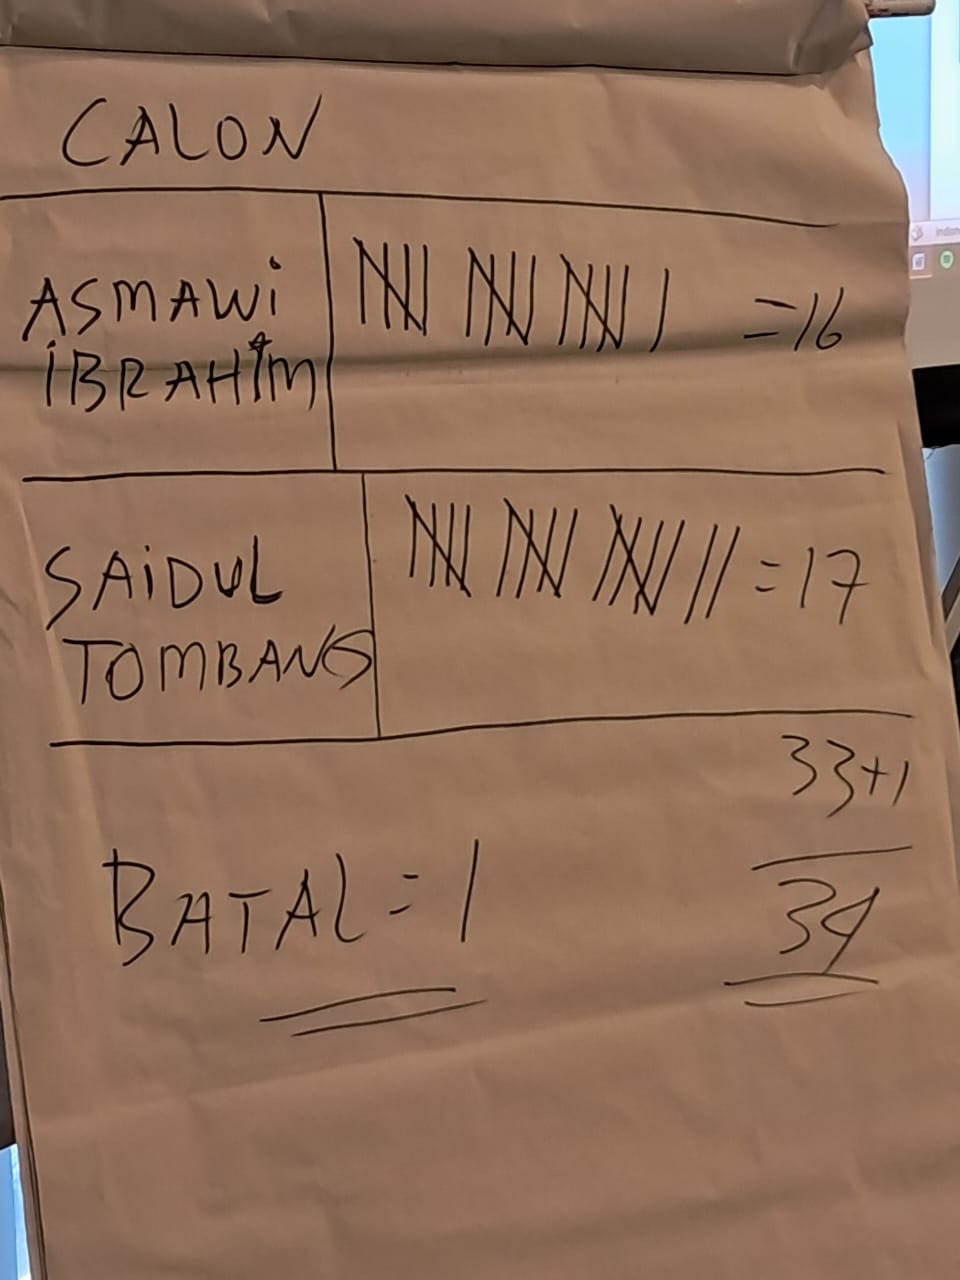 CALON
ASMAWi
iBRAHiM
= 16
SAiDUL
TOMBANG
= 17
33+1
34
BATAL = 1